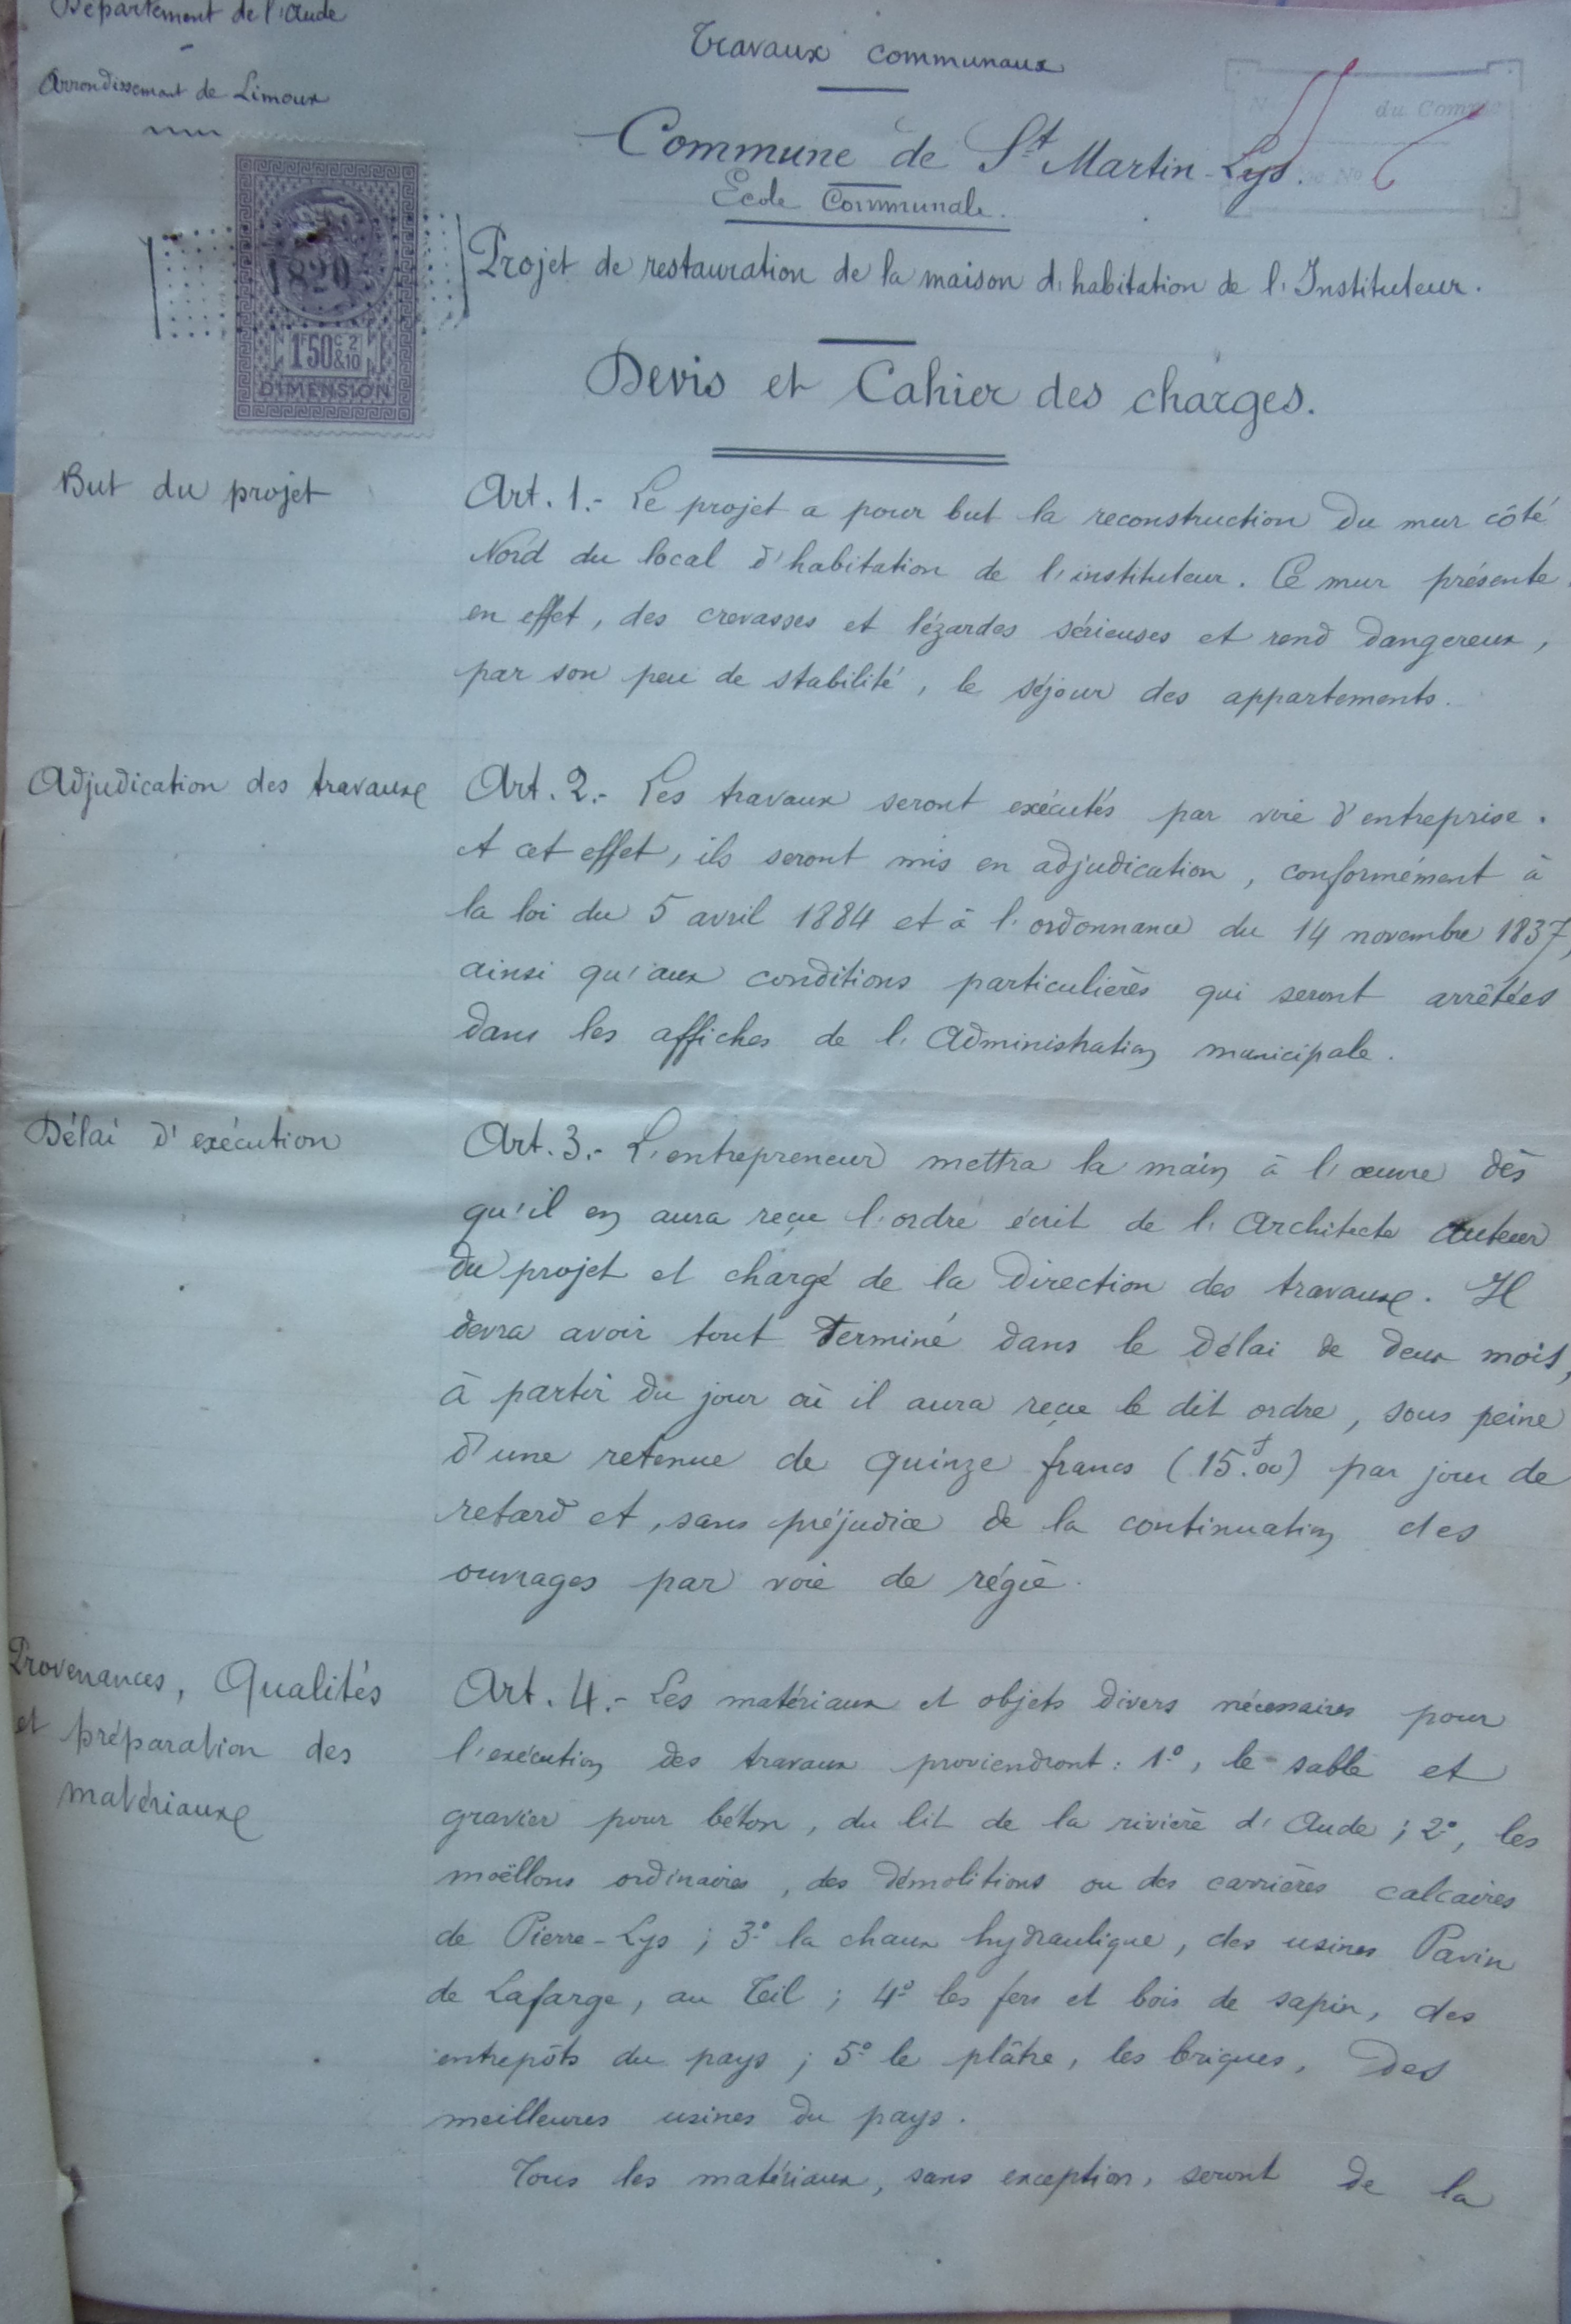 Département de l'Aude
Arrondissement de Limoux
Travaux communaux
Commune de St Martin-Lys.
Ecole Communale.
du Compte
N
Nº
1820
1F50c 2&10
DIMENSION
Projet de restauration de la maison d'habitation de l'Instituteur.
Devis et Cahier des charges.
But du projet
Art. 1.- Le projet a pour but la reconstruction du mur côté
Nord du local d'habitation de l'instituteur. Ce mur présente
en effet, des crevasses et lézardes sérieuses et rend dangereux,
par son peu de stabilité, le séjour des appartements.
Adjudication des travaux
Art. 2.- Les travaux seront exécutés par voie d'entreprise.
A cet effet, ils seront mis en adjudication, conformément à
la loi du 5 avril 1884 et à l'ordonnance du 14 novembre 1837,
ainsi qu'aux conditions particulières qui seront arrêtées
dans les affiches de l'Administration municipale.
Délai d'exécution
Art. 3.- L'entrepreneur mettra la main à l'œuvre dès
qu'il en aura reçu l'ordre écrit de l'Architecte auteur
du projet et chargé de la Direction des travaux. Il
devra avoir tout terminé dans le délai de deux mois,
à partir du jour où il aura reçu le dit ordre, sous peine
d'une retenue de quinze francs (15f.00) par jour de
retard et, sans préjudice de la continuation des
ouvrages par voie de régie.
Provenances, Qualités
et préparation des
matériaux
Art. 4.- Les matériaux et objets divers nécessaires pour
l'exécution des travaux proviendront : 1º, le sable et
gravier pour béton, du lit de la rivière d'Aude ; 2º, les
moëllons ordinaires, des démolitions ou des carrières calcaires
de Pierre-Lys ; 3º la chaux hydraulique, des usines Pavin
de Lafarge, au Teil ; 4º les fers et bois de sapin, des
entrepôts du pays ; 5º le plâtre, les briques, des
meilleures usines du pays.
Tous les matériaux, sans exception, seront de la